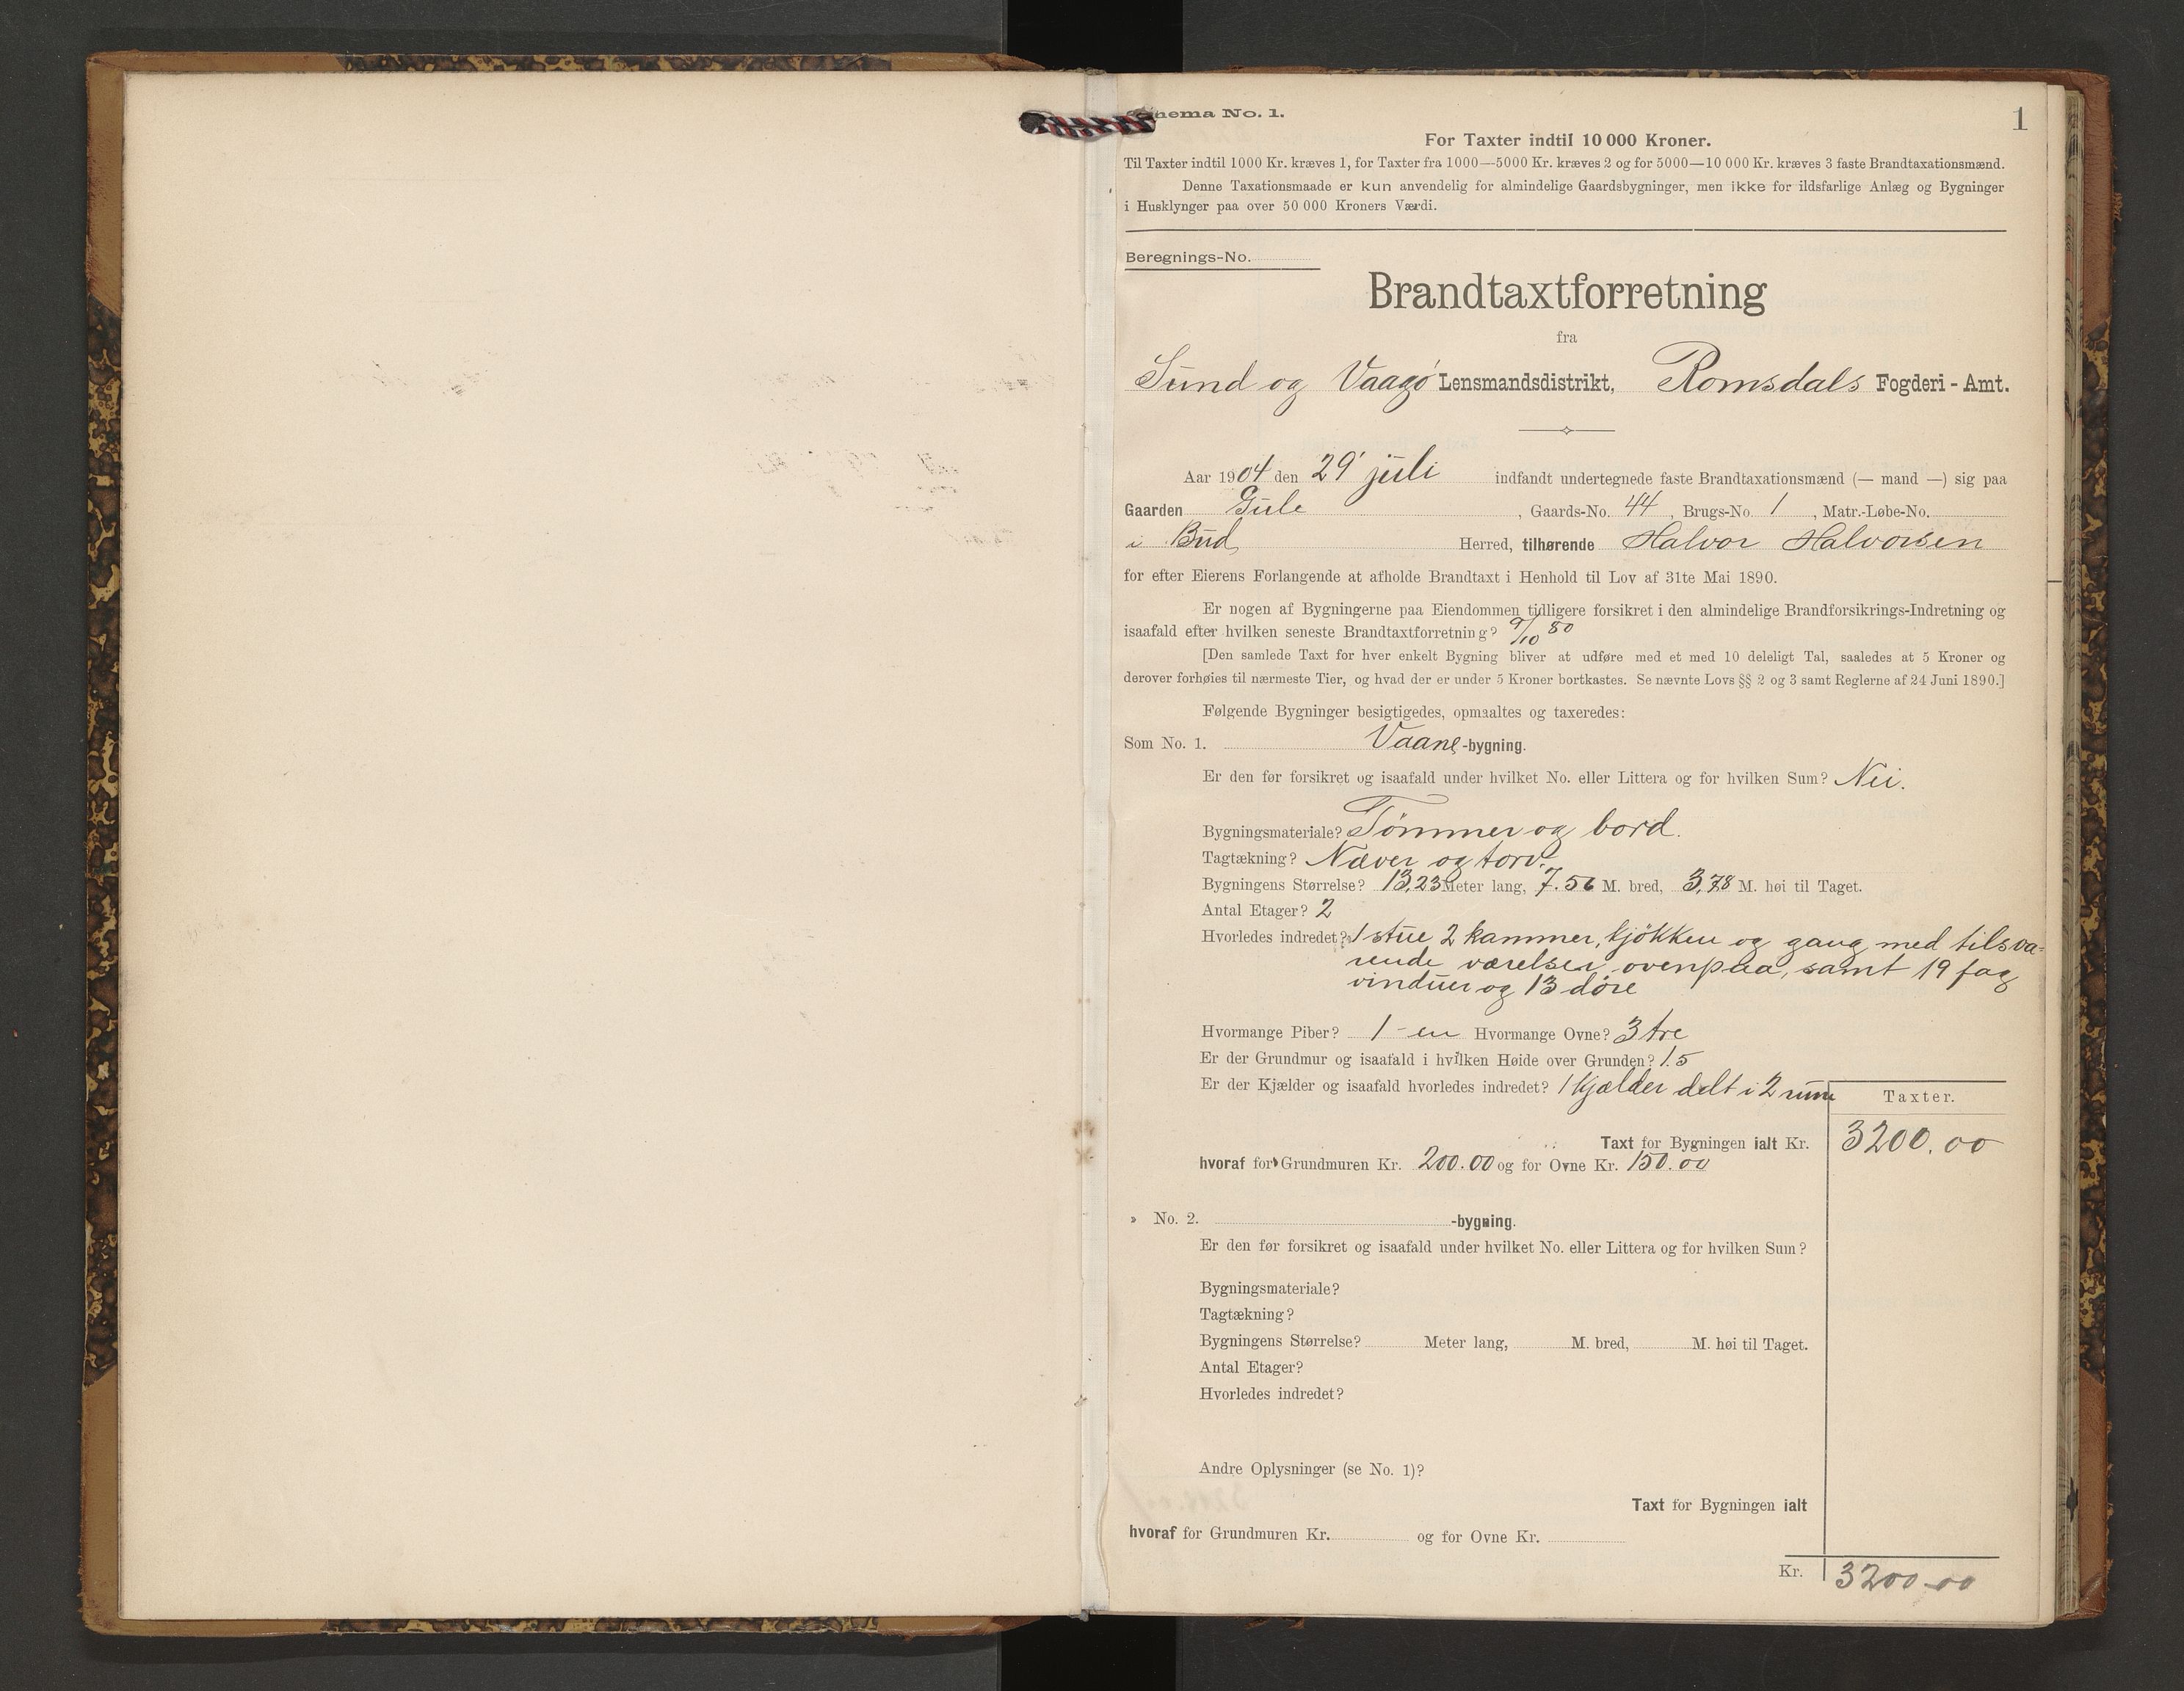 Schema No. 1.
1
For Taxter indtil 10 000 Kroner.
Til Taxter indtil 1000 Kr. kræves 1, for Taxter fra 1000—5000 Kr. kræves 2 og for 5000—10 000 Kr. kræves 3 faste Brandtaxationsmænd.
Denne Taxationsmaade er kun anvendelig for almindelige Gaardsbygninger, men ikke for ildsfarlige Anlæg og Bygninger
i Husklynger paa over 50 000 Kroners Værdi.
Beregnings-No.
Brandtaxtforretning
fra
Sund og Vaagø Lensmandsdistrikt, Romsdals Fogderi - Amt.
Aar 1904 den 29' juli indfandt undertegnede faste Brandtaxationsmænd (— mand —) sig paa
Gaarden Gule, Gaards-No. 44, Brugs-No. 1, Matr.-Løbe-No.
i Bud Herred, tilhørende Halvor Halvorsen
for efter Eierens Forlangende at afholde Brandtaxt i Henhold til Lov af 31te Mai 1890.
Er nogen af Bygningerne paa Eiendommen tidligere forsikret i den almindelige Brandforsikrings-Indretning og
isaafald efter hvilken seneste Brandtaxtforretning? 9/10 80
[Den samlede Taxt for hver enkelt Bygning bliver at udføre med et med 10 deleligt Tal, saaledes at 5 Kroner og
derover forhøies til nærmeste Tier, og hvad der er under 5 Kroner bortkastes. Se nævnte Lovs §§ 2 og 3 samt Reglerne af 24 Juni 1890.]
Følgende Bygninger besigtigedes, opmaaltes og taxeredes:
Som No. 1. Vaane-bygning.
Er den før forsikret og isaafald under hvilket No. eller Littera og for hvilken Sum? Nei.
Bygningsmateriale? Tömmer og bord.
Tagtækning? Næver og torv.
Bygningens Størrelse? 13,23 Meter lang, 7.56 M. bred, 3,78 M. høi til Taget.
Antal Etager? 2
Hvorledes indredet? 1 stue 2 kammer, kjökken og gang med tilsva-
rende værelser ovenpaa, samt 19 fag
vinduer og 13 döre
Hvormange Piber? 1 - en Hvormange Ovne? 3 tre
Er der Grundmur og isaafald i hvilken Høide over Grunden? 1.5
Er der Kjælder og isaafald hvorledes indredet? 1 kjælder delt i 2 rum
Taxter.
Taxt for Bygningen ialt Kr. 3200.00
hvoraf for Grundmuren Kr. 200.00 og for Ovne Kr. 150.00
» No. 2. -bygning.
Er den før forsikret og isaafald under hvilket No. eller Littera og for hvilken Sum?
Bygningsmateriale?
Tagtækning?
Bygningens Størrelse? Meter lang, M. bred, M. høi til Taget.
Antal Etager?
Hvorledes indredet?
Andre Oplysninger (se No. 1)?
Taxt for Bygningen ialt
hvoraf for Grundmuren Kr. og for Ovne Kr.
Kr. 3200.00